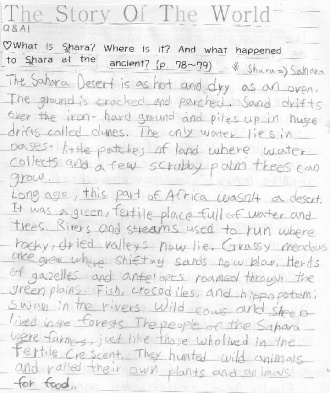 The Story Of The World
Q&A1
♡What is Shara? Where is it? And what happened
to Shara at the ancient? (p 78~79)
* Shara⇒Sahara
The Sahara Desert is as hot and dry as an oven.
The ground is cracked and parched. Sand drifts
over the iron-hard ground and piles up in huge
drifts called dunes. The only water lies in
oases- little patches of land where water
collects and a few scrubby palm trees can
grow.
Long ago, this part of Africa wasn't a desert.
It was a green, fertile place full of water and
trees. Rivers and streams used to run where
rocky, dried valleys now lie. Grassy meadows
once grew where shifting sands now blow. Herds
of gazelles and antelopes roamed through the
green plains. Fish, crocodiles, and hippopotami
swam in the rivers. Wild cows and sheep
lived in the forests. The people of the Sahara
were farmers, just like those who lived in the
Fertile Crescent. They hunted wild animals
and raised their own plants and animals
for food.